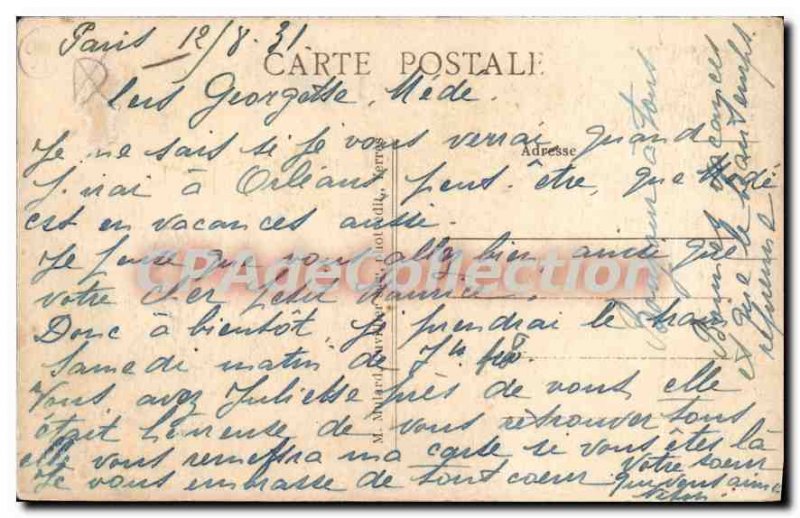 Paris 12/8.31
CARTE POSTALE
Georgette, Mède.
Je ne sais si je vous verrai quand
Adresse
j'irai à Orléans peut-être, que Médé
est en vacances aussi.
Je pense que vous allez bien, ainsi que
votre cher petit Maurice.
Donc à bientôt, je prendrai le train
samedi matin de 7h
Vous avez Juliette près de vous, elle
était heureuse de vous retrouver tous
elle vous remettra ma carte si vous êtes là
Je vous embrasse de tout coeur
votre soeur
qui vous aime
Bonjour à tous
Bonnes vacances
et que le beau temps
revienne
CPAdeCollection